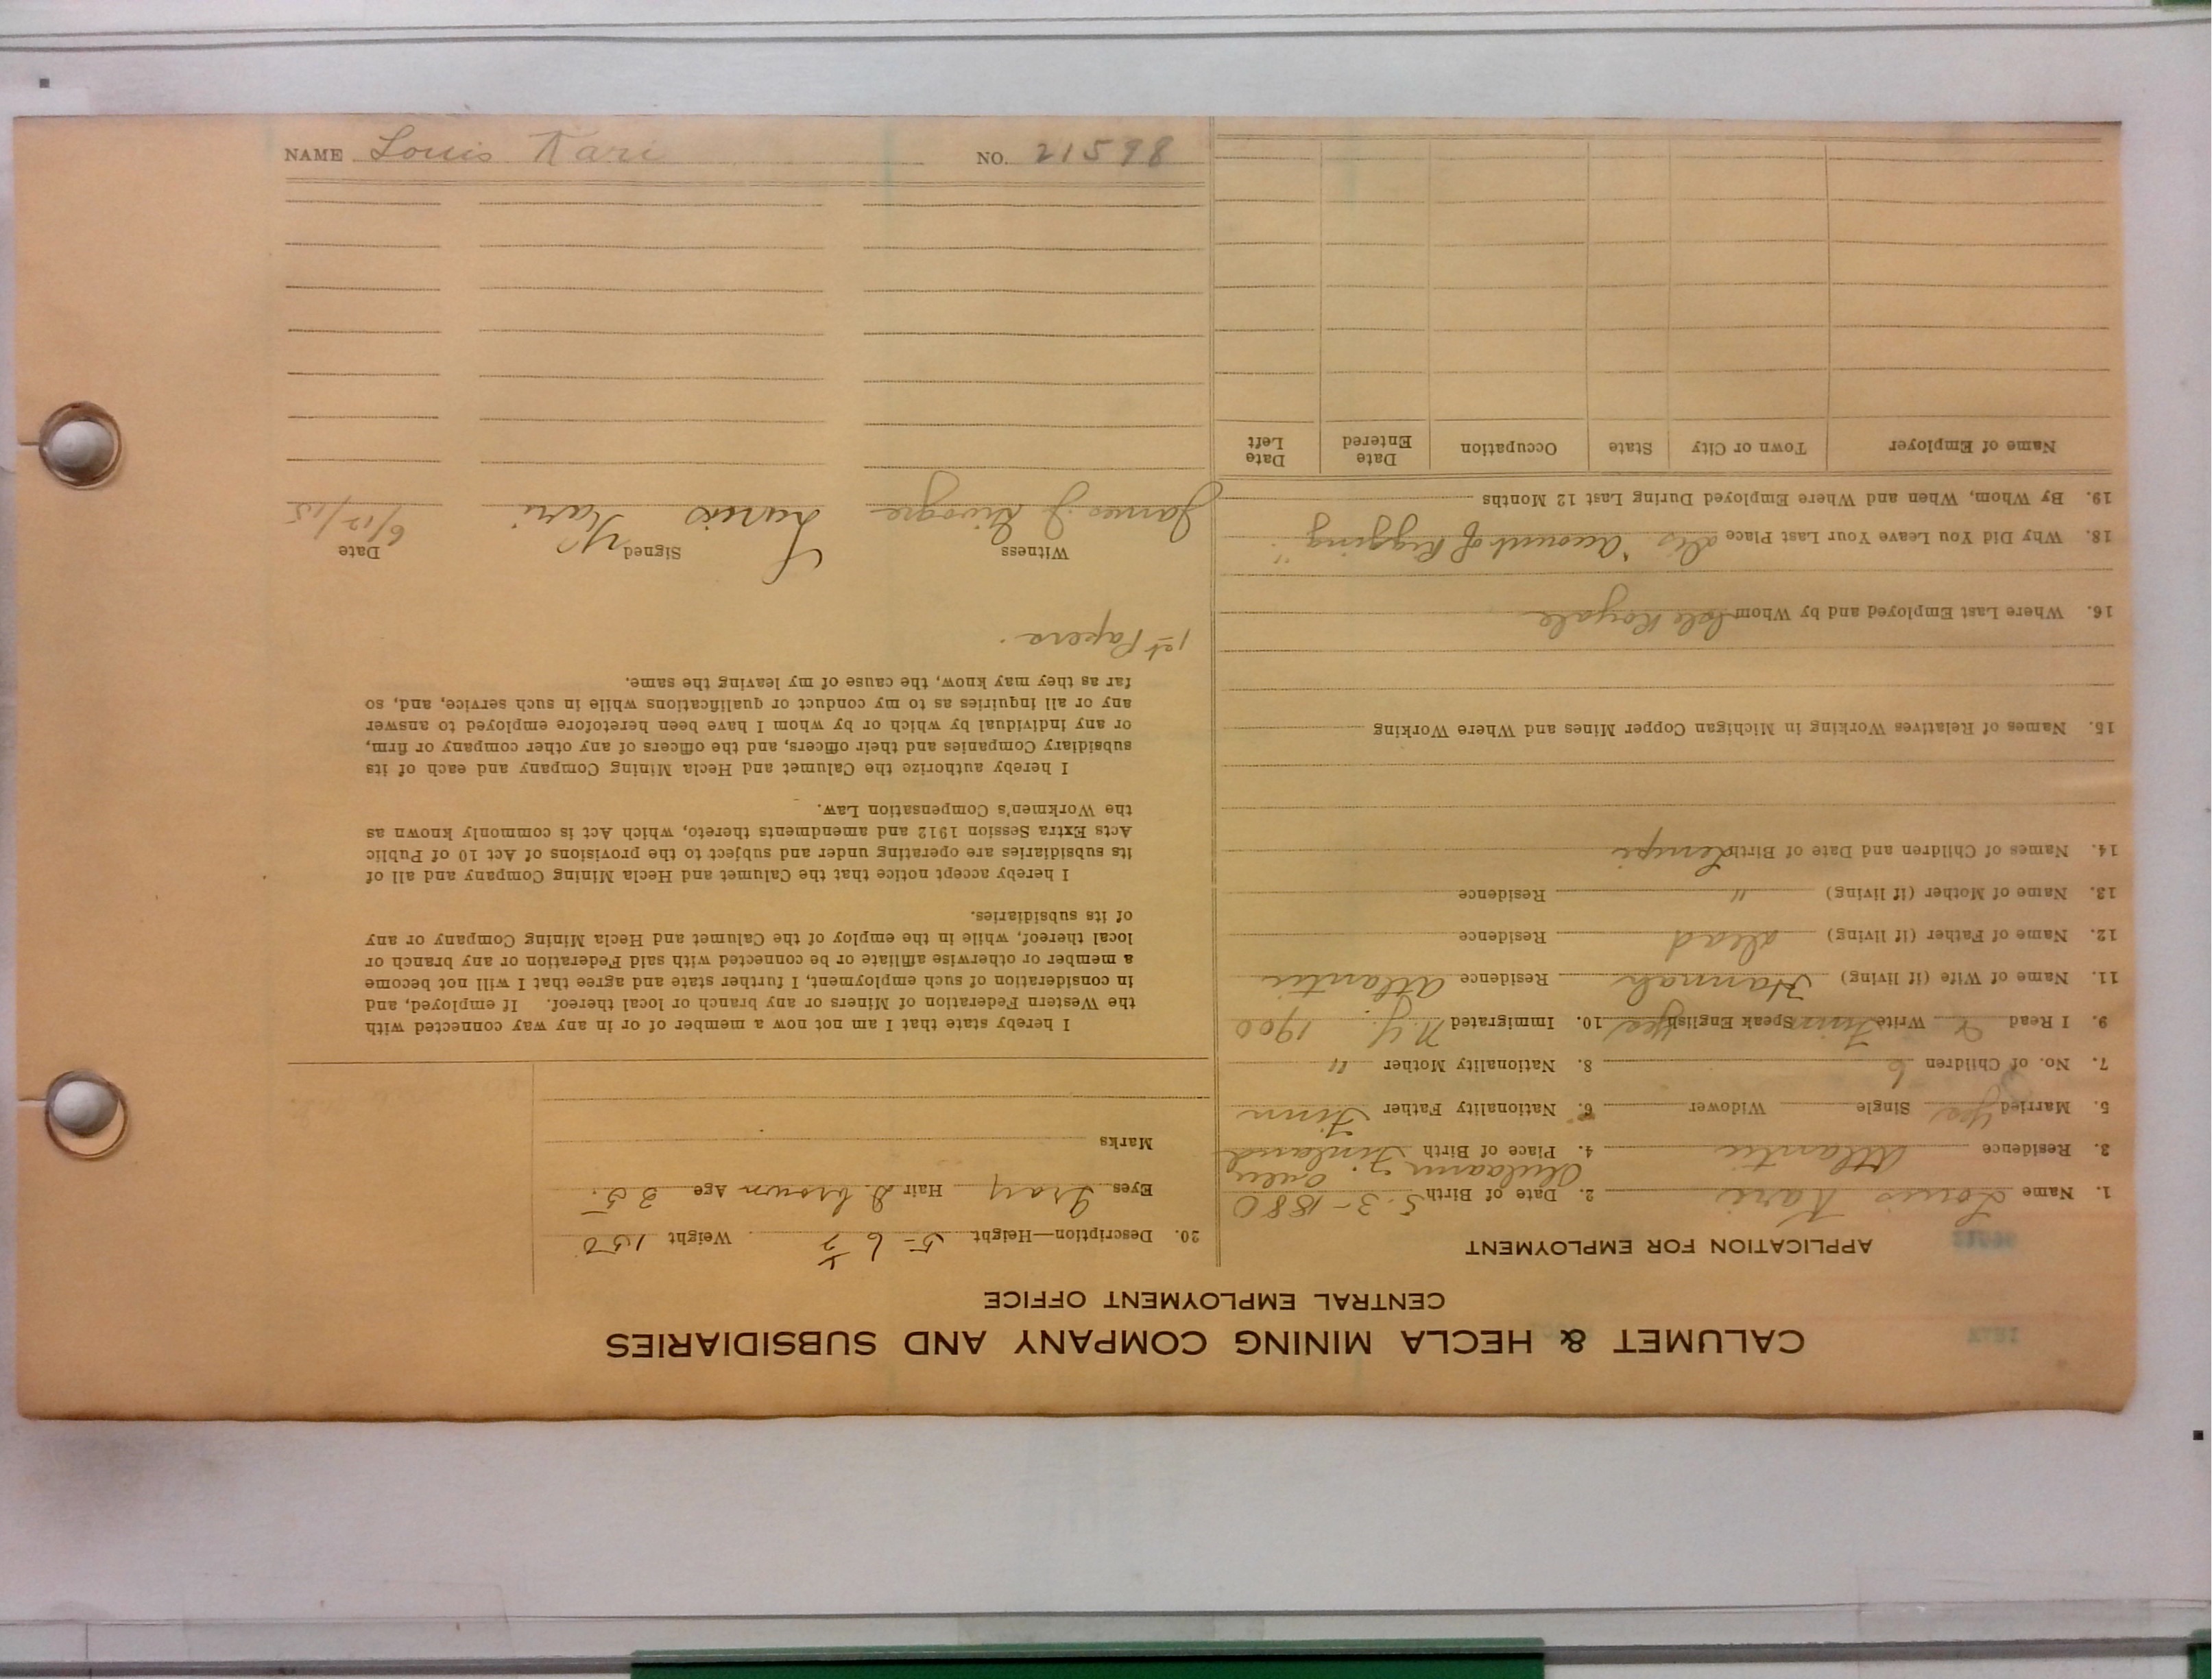 CALUMET & HECLA MINING COMPANY AND SUBSIDIARIES
CENTRAL EMPLOYMENT OFFICE
APPLICATION FOR EMPLOYMENT
1. Name Louis Kari 2. Date of Birth 5-3-1880
3. Residence Atlantic 4. Place of Birth Finland
5. Married Yes Single Widower 6. Nationality Father Finn
7. No. of Children 6 8. Nationality Mother "
9. I Read & Write Finn Speak English Yes 10. Immigrated N.Y. 1900
11. Name of Wife (if living) Hannah Residence Atlantic
12. Name of Father (if living) dead Residence
13. Name of Mother (if living) " Residence
14. Names of Children and Date of Birth Lempi
15. Names of Relatives Working in Michigan Copper Mines and Where Working
16. Where Last Employed and by Whom Isle Royale
18. Why Did You Leave Your Last Place dis "account of Rigging"
19. By Whom, When and Where Employed During Last 12 Months
Name of Employer Town or City State Occupation Date Entered Date Left
20. Description—Height 5-6 1/2 Weight 150
Eyes Gray Hair D. brown Age 35.
Marks
I hereby state that I am not now a member of or in any way connected with
the Western Federation of Miners or any branch or local thereof. If employed, and
in consideration of such employment, I further state and agree that I will not become
a member or otherwise affiliate or be connected with said Federation or any branch or
local thereof, while in the employ of the Calumet and Hecla Mining Company or any
of its subsidiaries.
I hereby accept notice that the Calumet and Hecla Mining Company and all of
its subsidiaries are operating under and subject to the provisions of Act 10 of Public
Acts Extra Session 1912 and amendments thereto, which Act is commonly known as
the Workmen's Compensation Law.
I hereby authorize the Calumet and Hecla Mining Company and each of its
subsidiary Companies and their officers, and the officers of any other company or firm,
or any individual by which or by whom I have been heretofore employed to answer
any or all inquiries as to my conduct or qualifications while in such service, and, so
far as they may know, the cause of my leaving the same.
1st Papers.
Witness Signed Date
James J. Kari 6/12/15
NAME Louis Kari NO. 21598